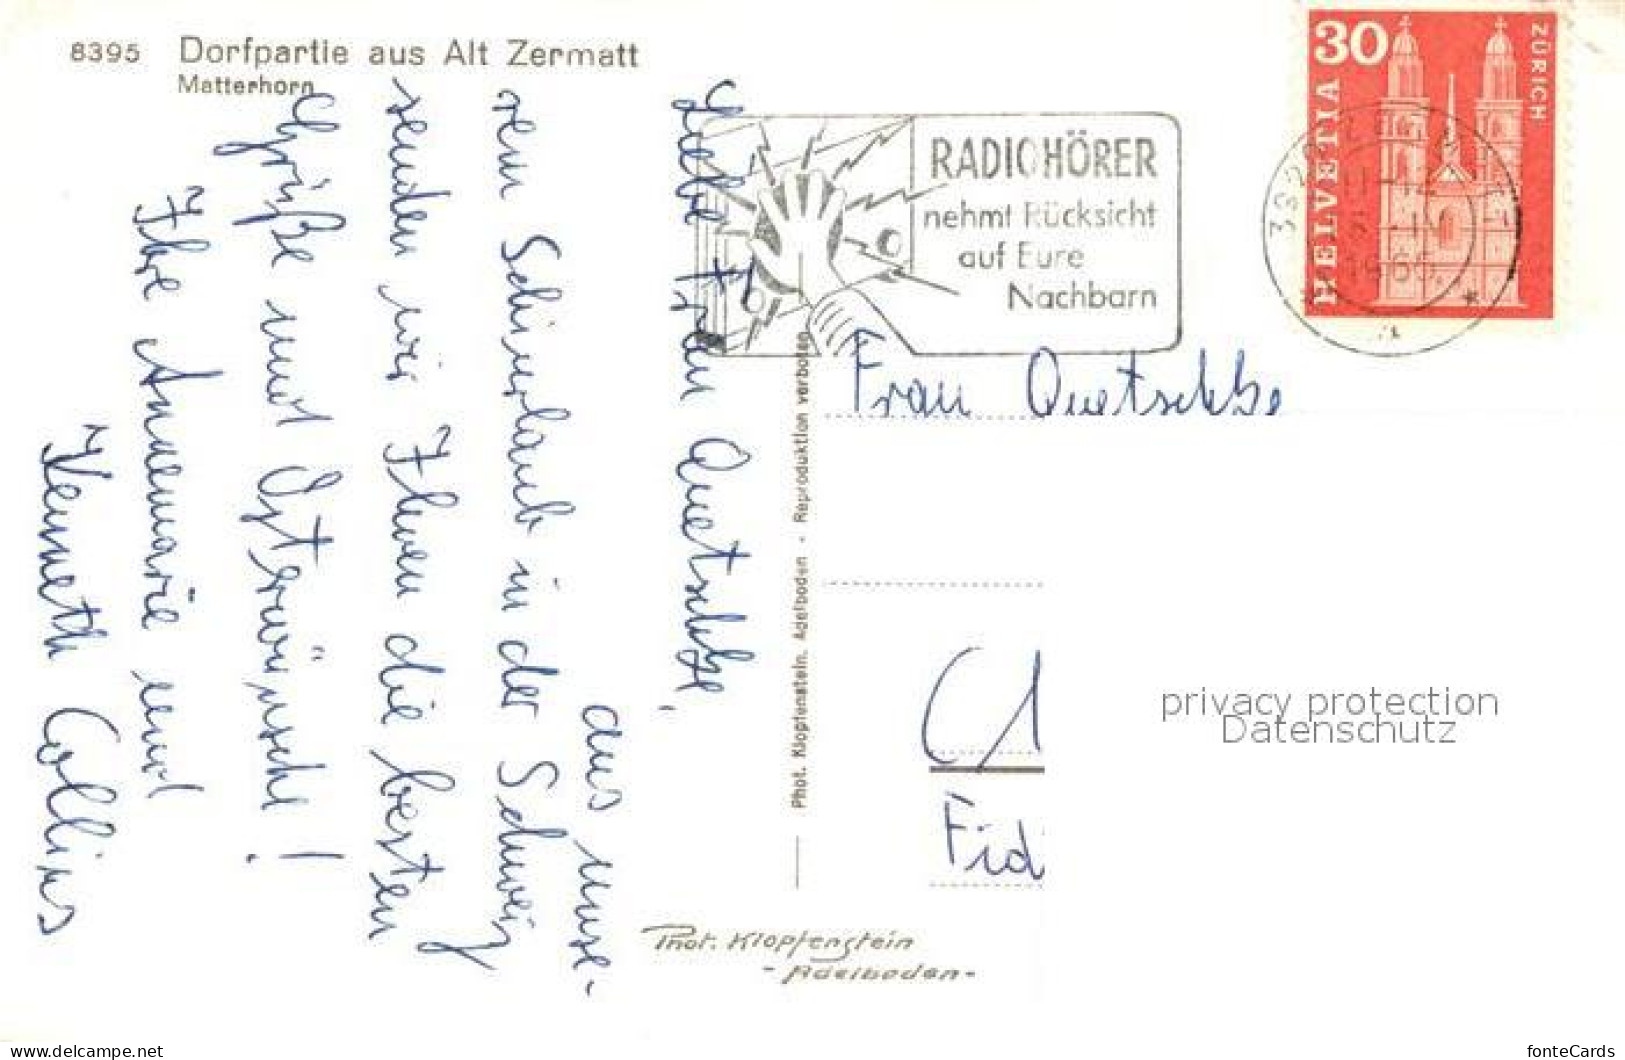 8395 Dorfpartie aus Alt Zermatt
Matterhorn
Liebe Frau Quetschke,
aus unse-
rem Schiurlaub in der Schweiz
senden wir Ihnen die besten
Grüße und Osterwünsche!
Ihre Annemarie und
Kenneth Collins
Phot. Klopfenstein, Adelboden - Reproduktion verboten
RADIOHÖRER
nehmt Rücksicht
auf Eure
Nachbarn
30
HELVETIA
ZÜRICH
Frau Quetschke
Phot. Klopfenstein
- Adelboden -
privacy protection
Datenschutz
www.delcampe.net
fonteCards